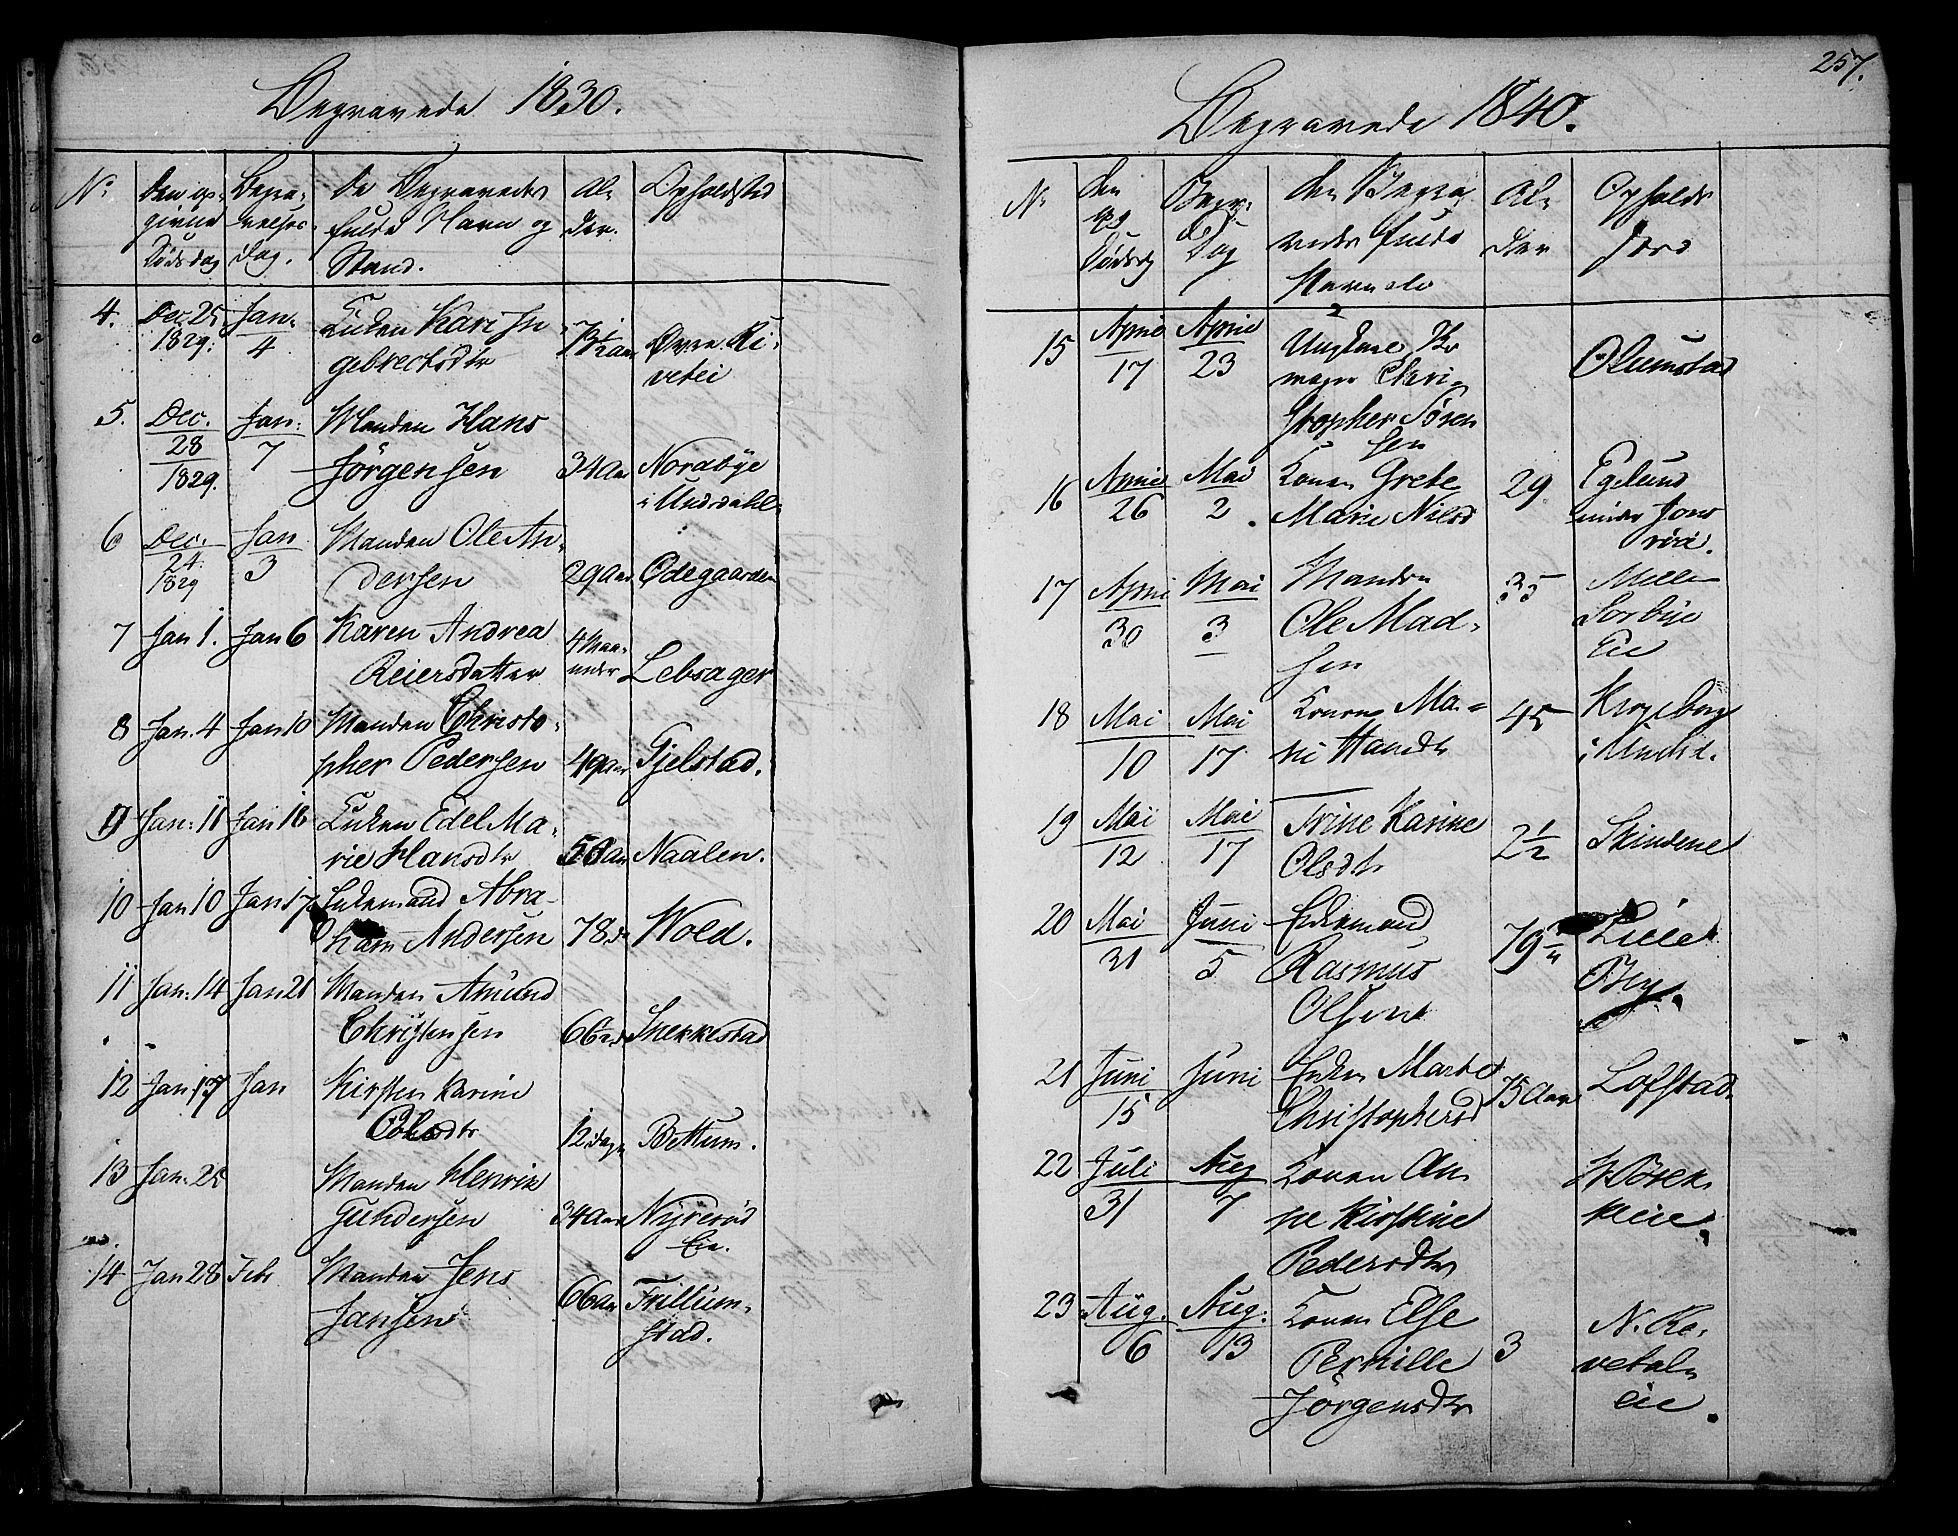 Begravede 1830.
No
Den op-
givne
Dødsdag
Begra-
velses
Dag.
De Begravedes
fulde Navn og
Stand.
Al-
der.
Opholdsted
4. Dec. 25 1829. Jan. 4
Enken Kari In
gebrectsdtr
Øvre Ri-
vetei
5. Dec. 28 1829. Jan: 7
Manden Hans
Jörgensen 34 Aar Norabÿe
i Undrdahl
6 Dec. 24. 1829 Jan 3
Manden Ole An-
dersen 29 Aar Ødegaarden
7 Jan 1. Jan 6 Karen Andrea
Reiersdatter 4 Maa-
neder Lebsager
8 Jan. 4 Jan 10 Manden Christo-
pher Pedersen 49 Aar Gjelstad.
9 Jan: 11 Jan 16 Enken Edel Ma-
rie Hansdtr Aar Naalen.
10 Jan 10 Jan 17 Enkemand Abra-
ham Andersen 78 Wold.
11 Jan: 14 Jan 21 Manden Amund
Christensen 66 Snekkestad
12 Jan 17 Jan Kirsten Karine
Olsdtr 12 Dage Bettum.
13 Jan: 25 Manden Henrik
Gundersen 34 Aar Nyrerød
Eie.
14 Jan 28 Febr Manden Jens
Jansen 66 Aar Trillum-
stad.
257.
Begravede 1840.
No
den
opg
Dødsdg
Begr.
Dag
den Begra
vedes fulde
Navn etc
Al-
der
Opholds
sted
15 April 17 April 23
Ungkarl
Chri-
stopher Sören
sen
Olumstad
16 April 26 Mai 2.
Konen Grete
Marie Nilsd
29 Egelund
under Jons
røi.
17 April 30 Mai 3
Manden
Ole Mad-
sen
35 Melle
Sorbye
Eie
18 Mai 10 Mai 17
Konen Ma-
ri Hansdtr
45 Krogeborg
i
19 Mai 12 Mai 17
Trine Karine
Olsdtr
2 1/2 Skindene
20 Mai 31 Juni 5
Enkemand
Rasmus
Olsen
79 Lille
By.
21 Juni 15 Juni
Enken Marte
Christophersd
75 Aar Lofstad
22 Juli 31 Aug 7
Konen An-
ne Kirstine
Pedersdtr
keie.
23 Aug. 6 Aug. 13
Konen Else
Pernille
Jörgensdtr
3 N. Ra-
vetals
eie.